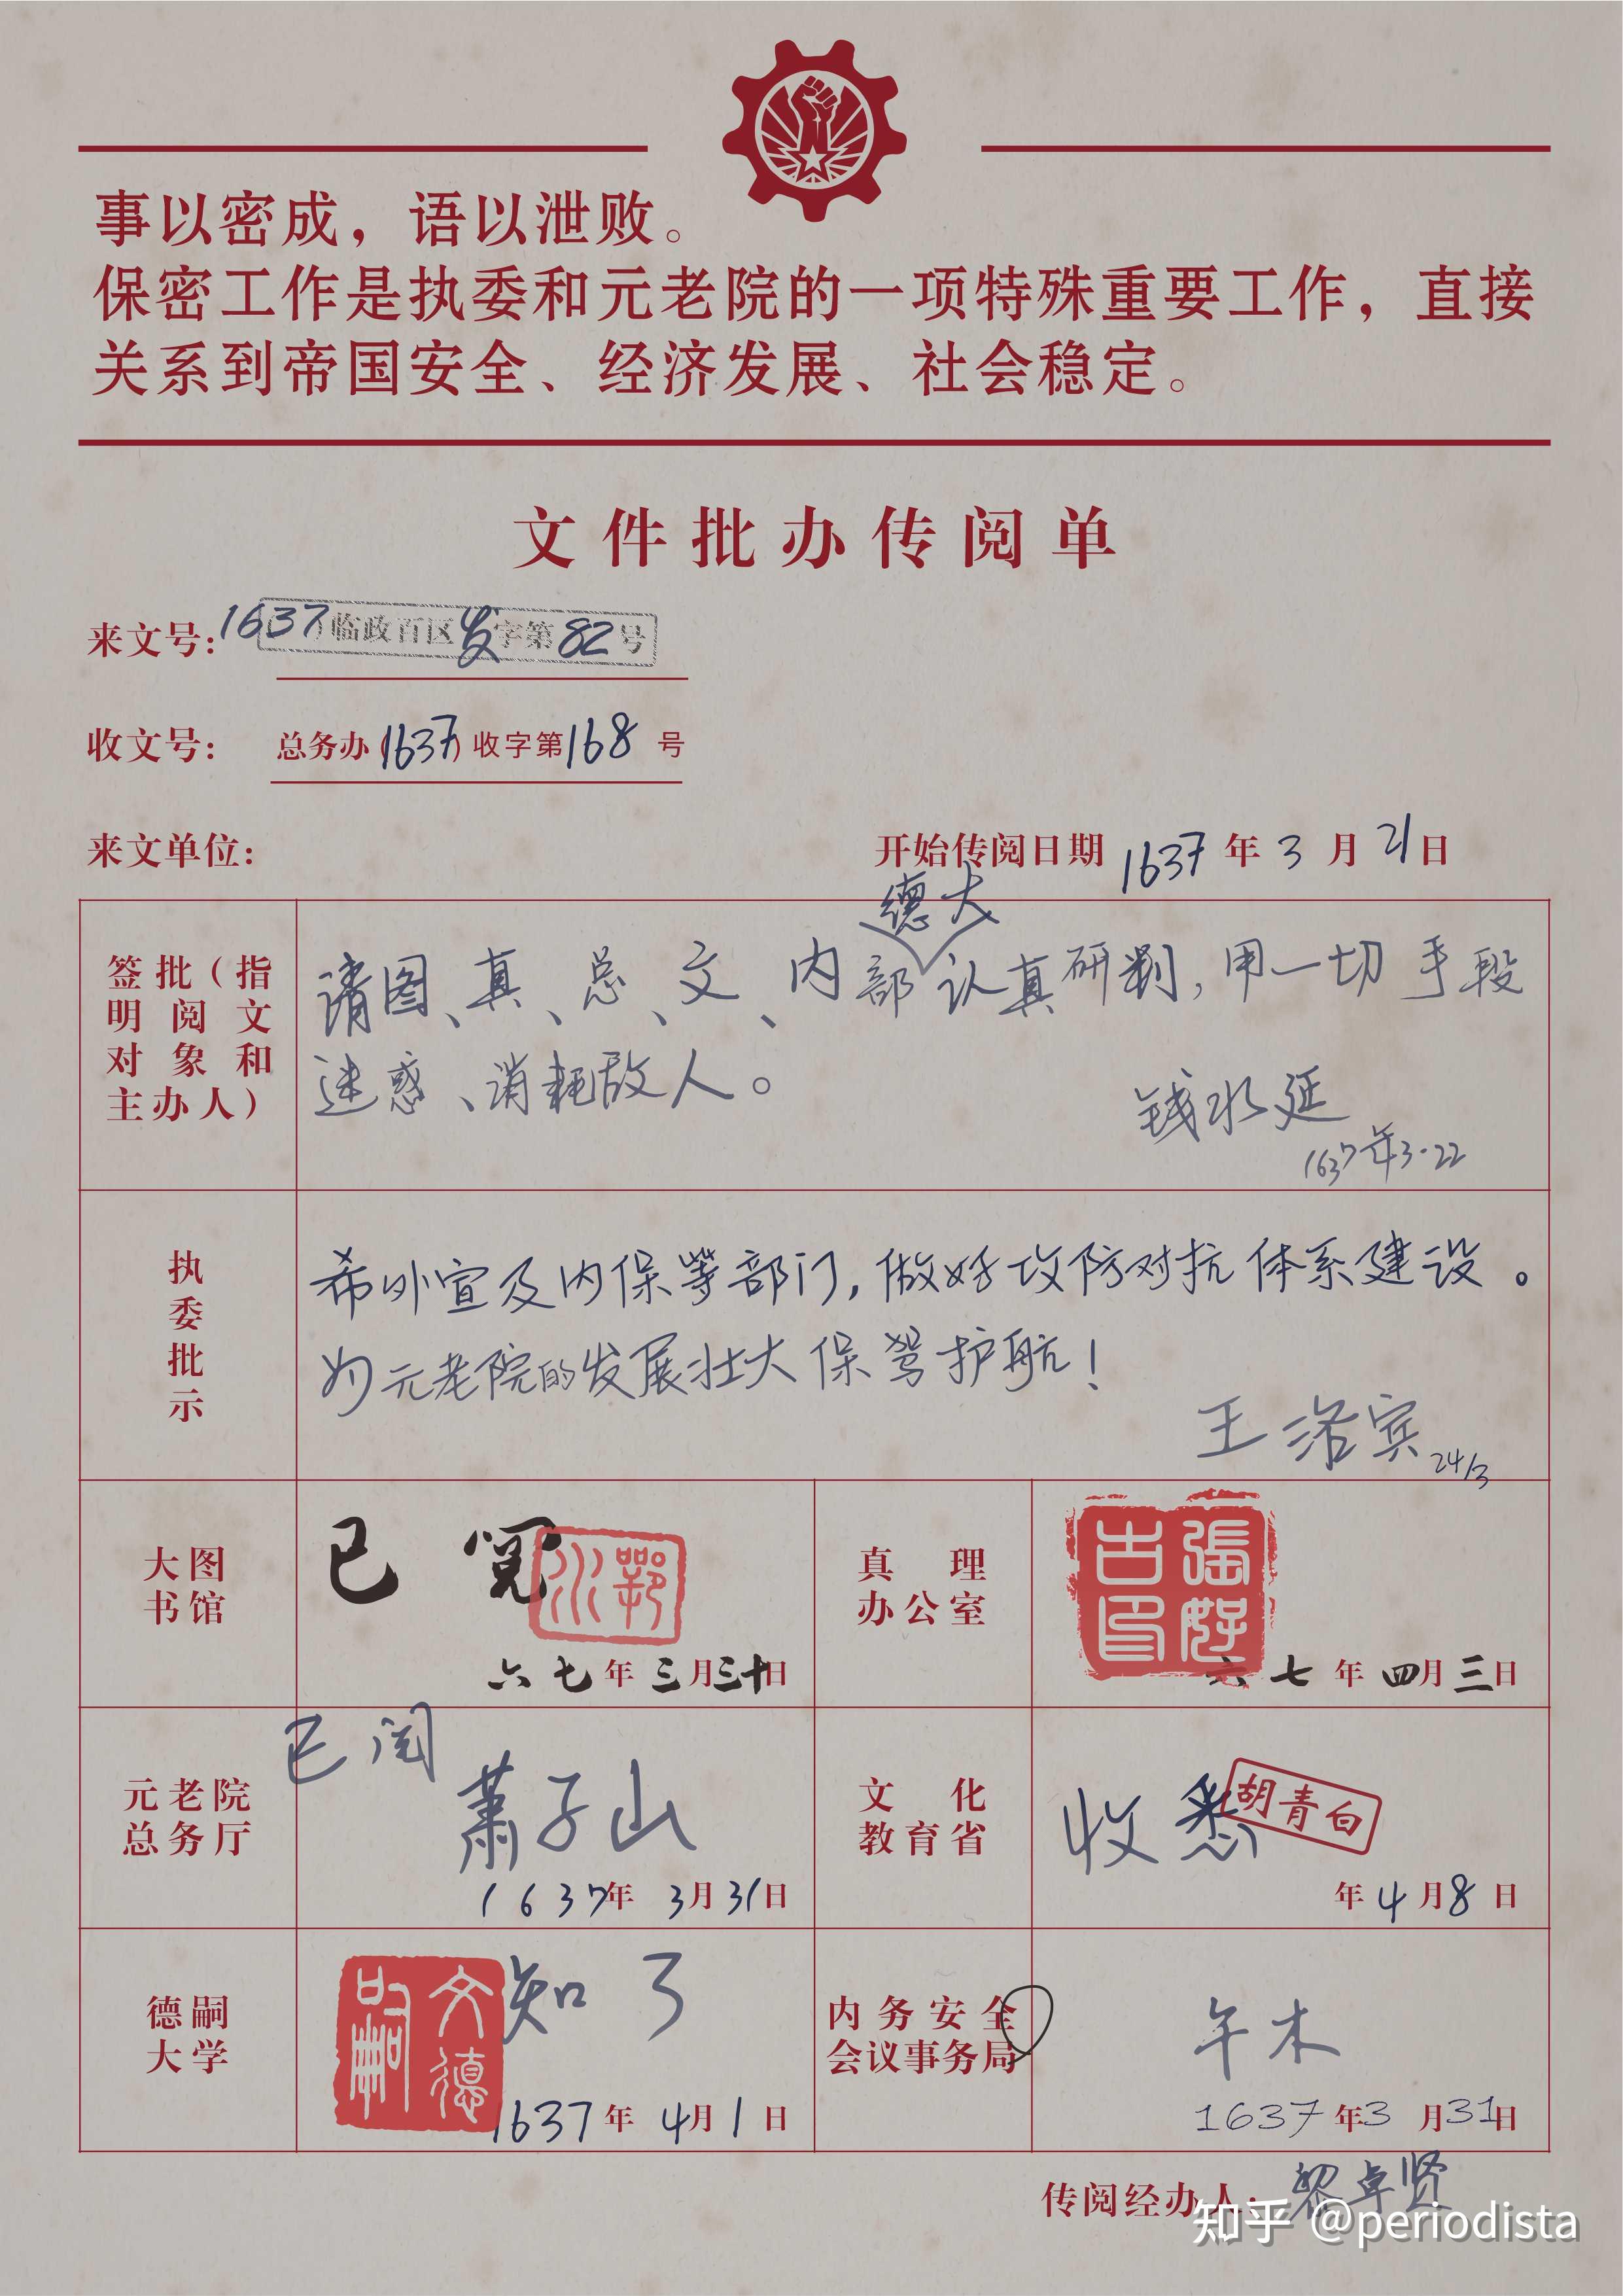 事以密成，语以泄败。
保密工作是执委和元老院的一项特殊重要工作，直接
关系到帝国安全、经济发展、社会稳定。
文件批办传阅单
来文号：1637临政百区发字第82号
收文号： 总务办(1637)收字第168号
来文单位：
开始传阅日期 1637年3月21日
签批（指
明阅文
对象和
主办人）
德大
请图、真、总、文、内部认真研判，用一切手段
迷惑、消耗敌人。
钱水廷
1637年3·22
执委批示
希外宣及内保等部门，做好攻防对抗体系建设。
为元老院的发展壮大保驾护航！
王洛宾
24/3
大图
书馆
已阅
六七年三月三十日
真理
办公室
張好古印
六七年四月三日
元老院
总务厅
已阅
萧子山
1637年3月31日
文化
教育省
收悉
胡青白
年4月8日
德嗣
大学
文德嗣
知了
1637年4月1日
内务安全
会议事务局
午木
1637年3月31日
传阅经办人：黎卓贤
知乎 @periodista